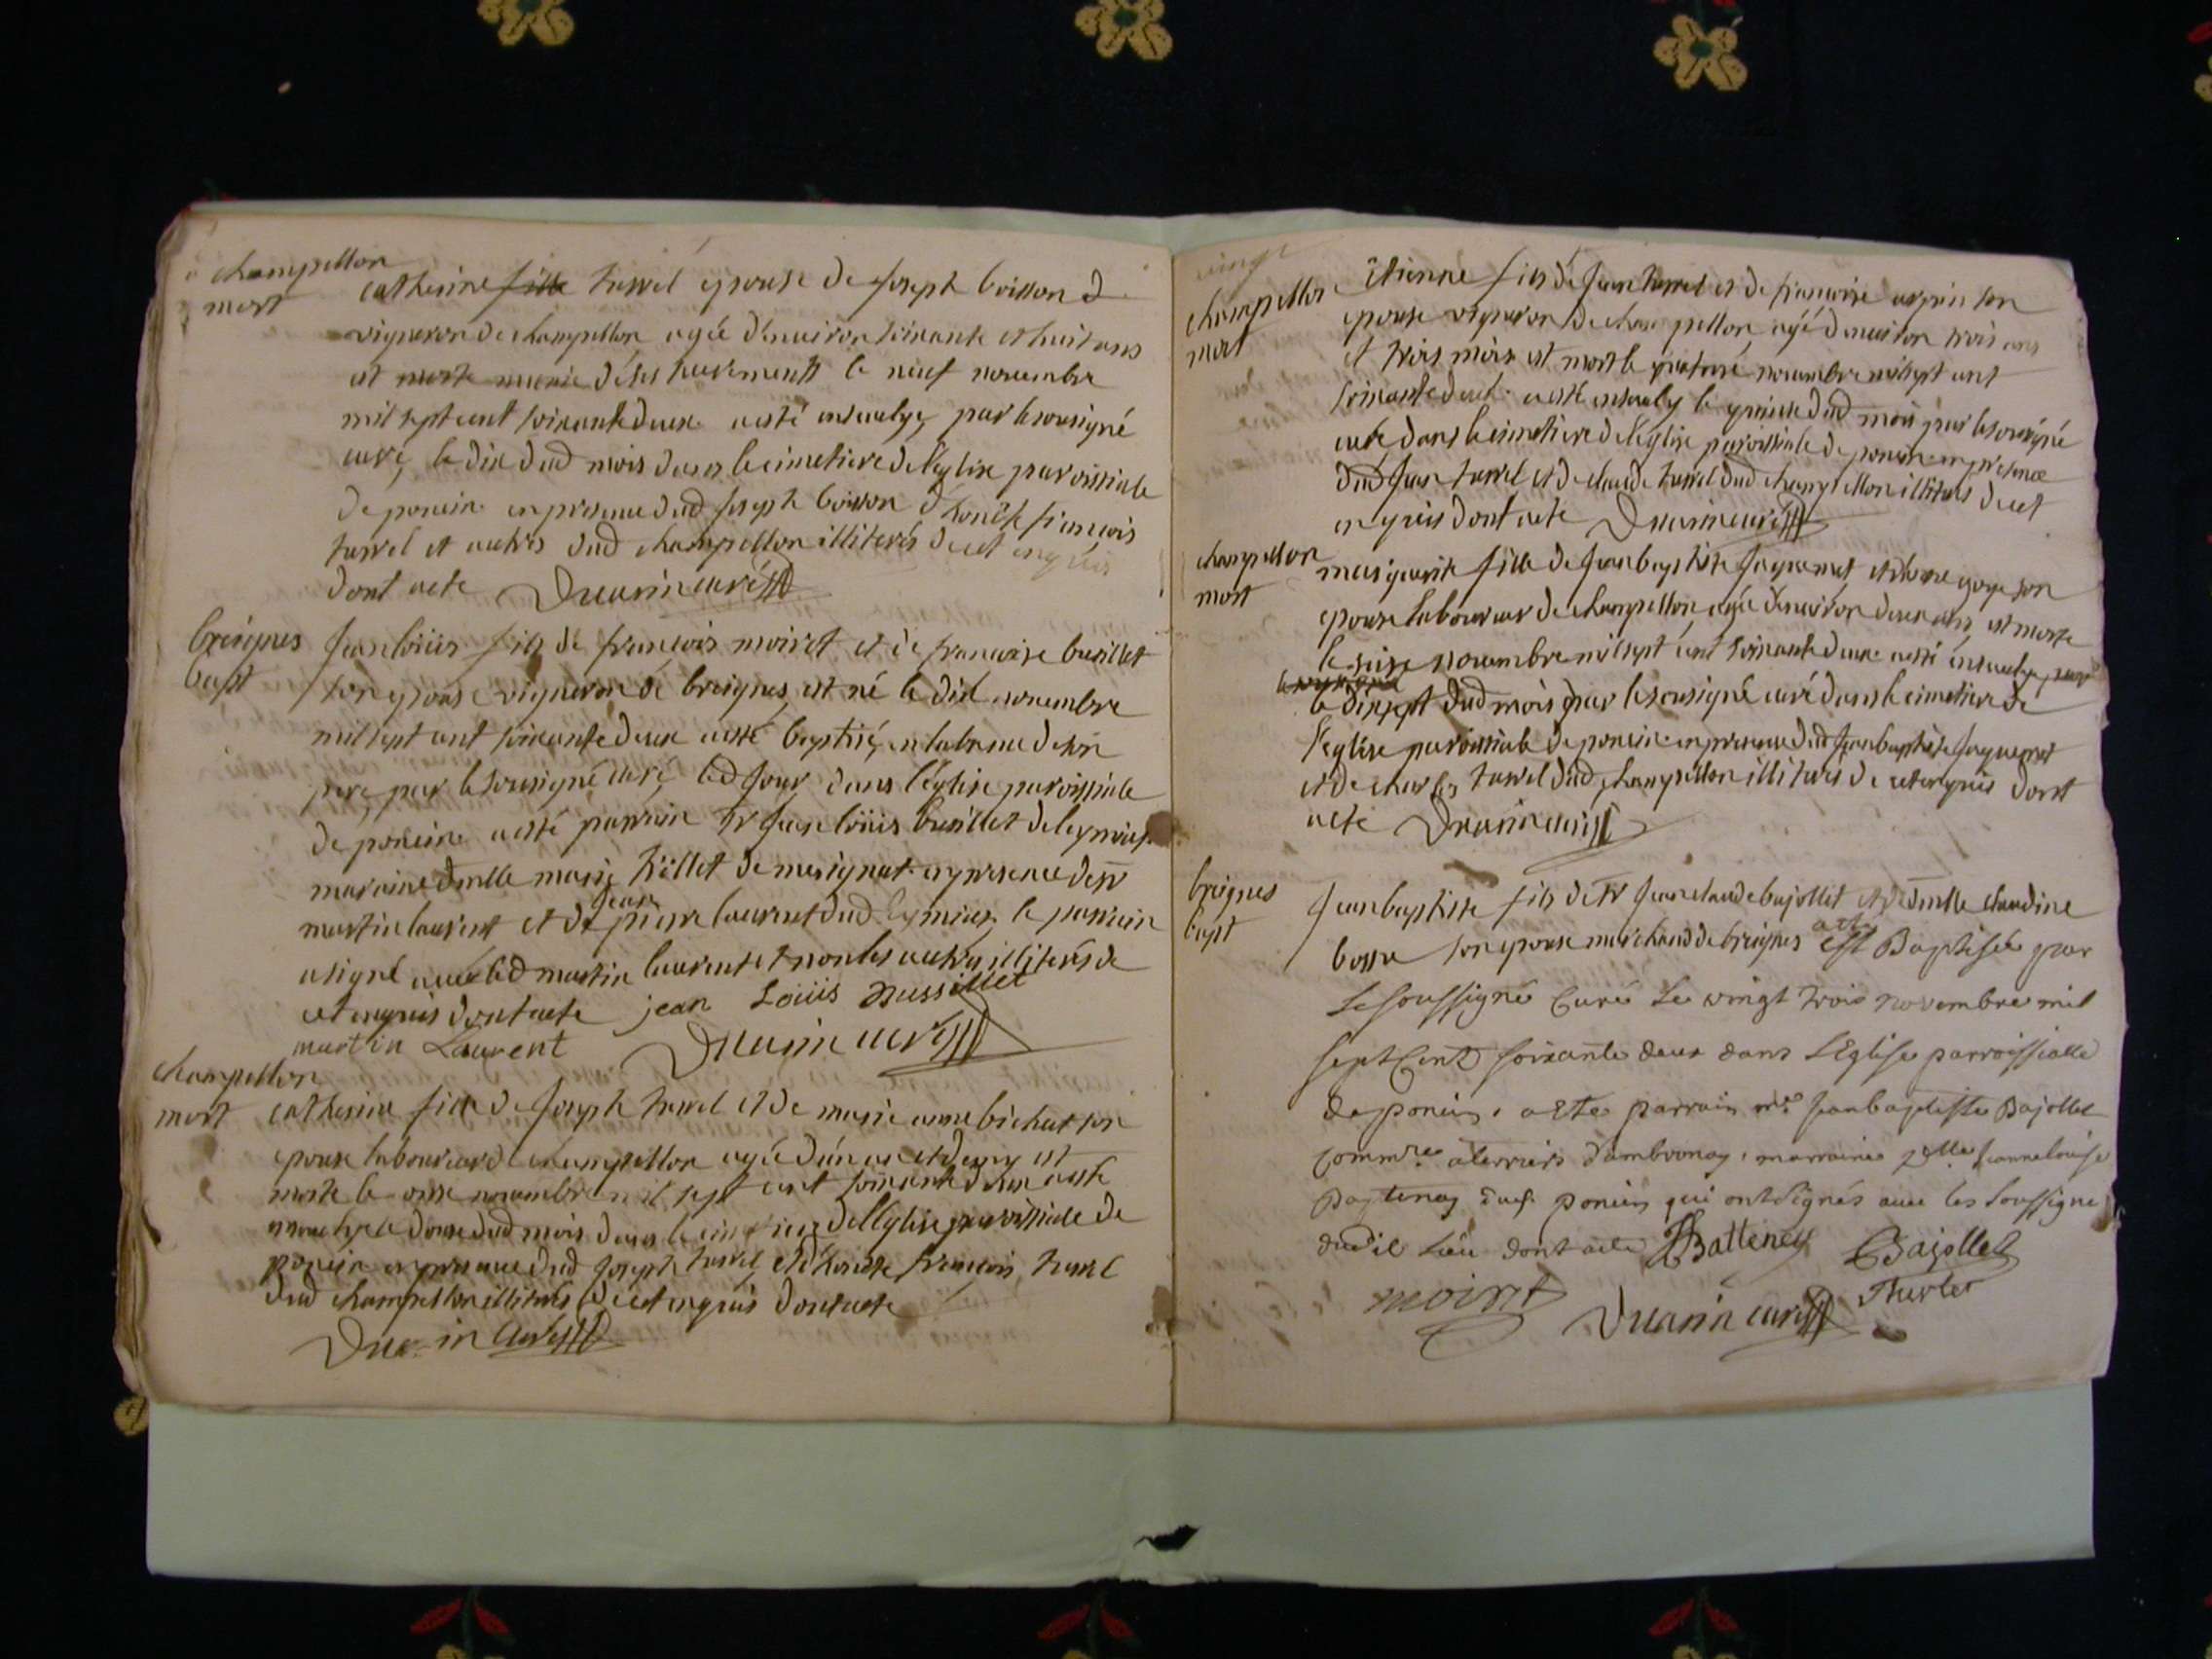 champellon
mort
catherine fille turrel epouse de Joseph boisson d
vigneron de champellon agée d'enuiron soixante et huit ans
est morte munie de ses sacrements le neuf nouembre
mil sept cent soixante deux a esté enseuelye par le sousigné
curé le dix dud mois dans le cimetiere de l'eglise paroissiale
de poncin en presence dud Joseph boisson d honête francois
turrel et autres dud champellon illiterés de ce enquis
dont acte Druarin curé
breignes
bapt
Jean loüis fils de francois moiret et de francoise busillet
son epouse vigneron de breignes est né le dix nouembre
mil sept cent soixante deux a esté baptisé en labsence de son
pere par le sousigné curé led jour dans l'église paroissiale
de poncin a esté parrain sr Jean loüis busillet de leymiat
maraine dmlle marie trillet de merignat en presence de sr
martin laurent et de jean pierre laurent dud leymiat le parrain
a signé auec led martin laurent et non les autres illiterés de
ce enquis dont acte jean Loüis Bussillet
martin Laurent Druarin curé
champellon
mort
catherine fille de Joseph turrel et de marie anne bichat son
epouse laboureur de champellon agée d'un an et demy est
morte le onze nouembre mil sept cent soixante deux a esté
enseuelye le douze dud mois dans le cimetiere de l'eglise paroissiale de
poncin en presence dud Joseph turrel et d'honête francois turrel
dud champellon illiterés de ce enquis dont acte
Druarin curé
vingt
champellon
mort
Etienne fils de Jean turrel et de francoise son
epouse vigneron de champellon agé d'enuiron trois ans
et trois mois est mort le quatorze nouembre mil sept cent
soixante deux a esté enseuely le quinze dud mois par le sousigné
curé dans le cimetiere de l'eglise paroissiale de poncin en presence
dud Jean turrel et de claude turrel dud champellon illiterés de ce
enquis dont acte Druarin curé
champellon
mort
marguerite fille de Jean baptiste Jaquemet et son
epouse laboureur de champellon agée d'enuiron deux ans est morte
le seize nouembre mil sept cent soixante deux a esté enseuelye par
le sousigné
le dixsept dud mois par le sousigné curé dans le cimetiere de
l'eglise paroissiale de poncin en presence dud Jean baptiste Jaquemet
et de charles turrel dud champellon illiterés de ce enquis dont
acte Druarin curé
breignes
bapt
Jean baptiste fils de sr Jean claude bajollet et de dmlle claudine
bosse son epouse marchand de breignes a esté est Baptisée par
Le soussigné Curé Le vingt trois novembre mil
sept Cent soixante deux dans L'Eglise parroissialle
de poncin, a Eté parrain me Jean baptiste Bajollet
Commre a terriers d'ambronay, marraine Jeanne louise
Battenay dud. poncin qui ont signés avec les soussigné
dudit lieu dont acte Batteney Bajollet
moiret Druarin curé